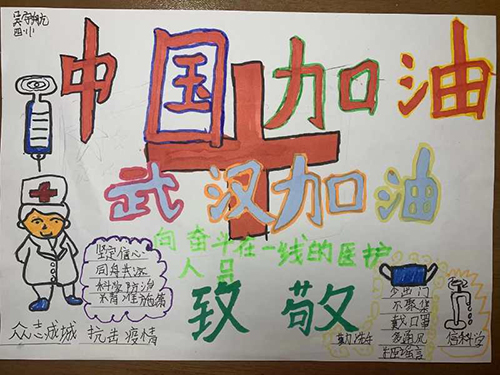 四小
中国加油
武汉加油
向奋斗在一线的医护
人员
致敬
坚定信心
同舟共济
科学防治
精准施策
众志成城 抗击疫情
勤洗手
少出门
不聚集
戴口罩
多通风
信科学